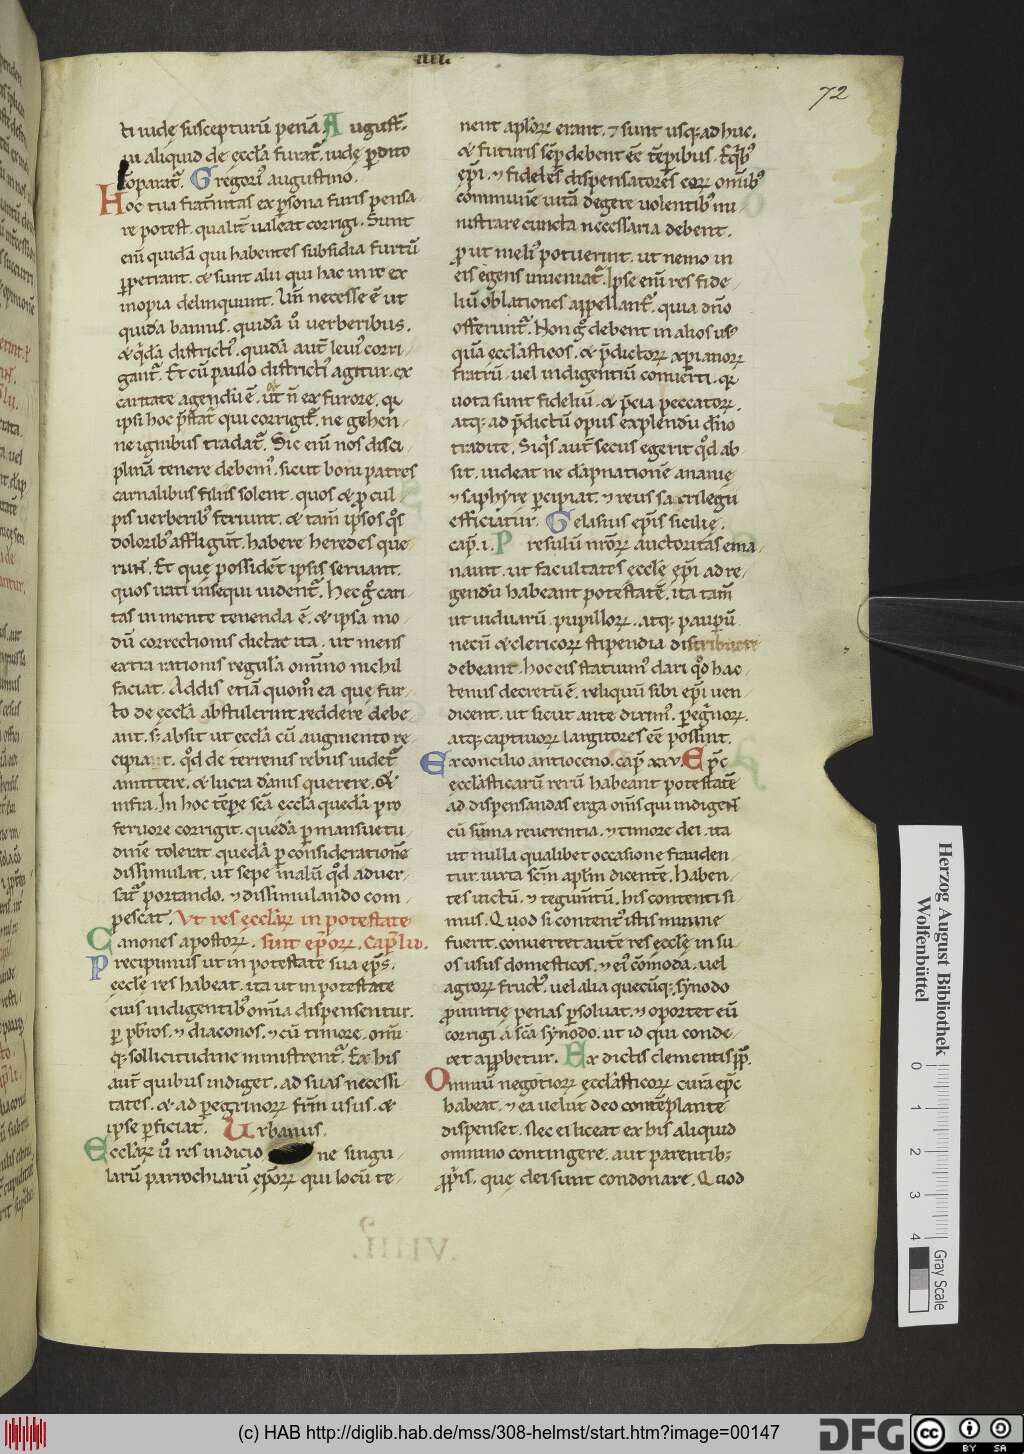 IIII.
72
ti iudę suscepturū penā. Augustī.
ui aliquid de ęccła furat̃. iudę ꝑdito
cōparat̃. Gregori᷒ augustino.
Hoc tua frat̃nitas ex ꝑsona furis pensa-
re potest. qualit̃ ualeat corrigi. Sunt
enī quidā qui habentes subsidia furtū
ꝑpetrant. & sunt alii qui hac in re ex
inopia delinquunt. Vñ necesse ē ut
quidā dannis. quidā ů uerberibus.
& q̇dā districti᷒. quidā aut̃ leui᷒ corri-
gant̃. Et cū paulo districti᷒ agitur. ex
caritate agendū ē. & n̄ ex furore. qꝛ
ipsi hoc p̄stat̃ qui corrigit̃. ne gehen-
nę ignibus tradat̃. Sic enī nos disci-
plinā tenere debem᷒. sicut boni patres
carnalibus filiis solent. quos & ꝓ cul-
pis uerberib᷒ feriunt. & tam̄ ipsos q̊s
dolorib᷒ affligūt. habere heredes quę-
runt̃. Et quę possidēt ipsis seruant.
quos irati insequi uident̃. Hec g̊ cari-
tas in mente tenenda ē. & ipsa mo-
dū correctionis dictat ita. ut mens
extra rationis regulā omīno nichil
faciat. Addis etiā quom̊ ea quę fur-
to de ęccła abstulerint reddere debe-
ant. s; absit ut ęccła cū augmento re-
cipiat. qd̄ de terrenis rebus uidet̃
amittere. & lucra dānis querere. Et
infra. In hoc tēpe scā ęccła quedā ꝓ
feruore corrigit. quedā ꝑ mansuetu-
dinē tolerat. quedā ꝑ considerationē
dissimulat. ut sepe malū qd̄ aduer-
sat̃ portando. ⁊ dissimulando com-
pescat. Vt res ęccłaꝝ in potestate
Canones apostoꝝ. sint ep̄oꝝ. Cap̄. LII.
Precipimus ut in potestate sua ep̄s.
ęcclę res habeat. ita ut in potestate
eius indigentib᷒ om̄ia dispensentur.
ꝑ p̄bros. ⁊ diaconos. ⁊ cū timore. om̄i
q; sollicitudine ministrent̃. Ex his
aut̃ quibus indiget. ad suas necessi-
tates. & ad ꝑegrinoꝝ frm̄ usus. &
ipse ꝑficiat. Vrbanus.
Ecclaꝝ ů res indicio ne singu-
larū parrochiarū ep̄oꝝ qui locū te-
nent aploꝝ erant. ⁊ sunt usq; ad huc.
& futuris sēp debent ēē tēporibus. E quib᷒
ep̄i. ⁊ fideles dispensatores eoꝝ omīb᷒
communē uitā degere uolentib᷒ mi-
nistrare cuncta necessaria debent.
ꝓut meli᷒ potuerint. ut nemo in
eis egens inueniat̃. Ipse enī res fide-
liū oblationes appellant̃. quia dn̄o
offerunt̃. Non g̊ debent in alios us᷒
quā ęcclasticos. & p̄dictoꝝ xp̄ianoꝝ
fratrū. uel indigentiū conuerti. qꝛ
uota sunt fideliū. & p̄cia peccatoꝝ.
atq; ad p̄dictū opus explendū dn̄o
tradite. Siqⁱs aut̃ secus egerit qd̄ ab
sit. uideat ne dāpnationē ananię
⁊ saphyrę ꝑcipiat. ⁊ reus sacrilegii
efficiatur. Gelasius ep̄is sicilię.
cap̄. i. Presulū nr̄oꝝ auctoritas ema-
nauit. ut facultates ęcclę ep̄i ad re-
gendū habeant potestatē. ita tam̄
ut uiduarū. pupilloꝝ. atq; paupū.
necn̄ & clericoꝝ stipendia distribuere
debeant. hoc eis statuim᷒ dari qd̊ hac-
tenus decretū ē. reliquū sibi ep̄i uen-
dicent. ut sicut ante dixim᷒. ꝑeg̃noꝝ.
atq; captiuoꝝ largitores ēē possint.
Ex concilio antioceno. cap̄. XXV. Ep̄c
ecclasticarū rerū habeant potestatē
ad dispensandas erga om̄s qui indigent̃
cū sūma reuerentia. ⁊ timore dei. ita
ut nulla qualibet occasione frauden-
tur. iuxta sc̄m aplm̄ dicentē. Haben-
tes uictū. ⁊ tegum̄tū. his contenti si-
mus. Quod si content᷒ istis minime
fuerit. conuertat aut̃ res ęcclę in su-
os usus domesticos. ⁊ ei᷒ cōmoda. uel
agroꝝ fruct᷒. uel alia quecūq; synodo
ꝓuintię penas ꝑsoluat. ⁊ oportet eū
corrigi a sc̄a synodo. ut id qui conde-
cet apꝓbetur. Ex dictis clementis p̄p̄.
Omniū negotioꝝ ecclasticoꝝ curā ep̄c
habeat. ⁊ ea uelut deo contēplante
dispenset. Nec ei liceat ex his aliquid
omnino contingere. aut parentib;
ꝓpriis. quę dei sunt condonare. Quod
.VIIII.
Herzog August Bibliothek
Wolfenbüttel
0 1 2 3 4
Gray Scale
(c) HAB http://diglib.hab.de/mss/308-helmst/start.htm?image=00147
DFG
cc BY SA